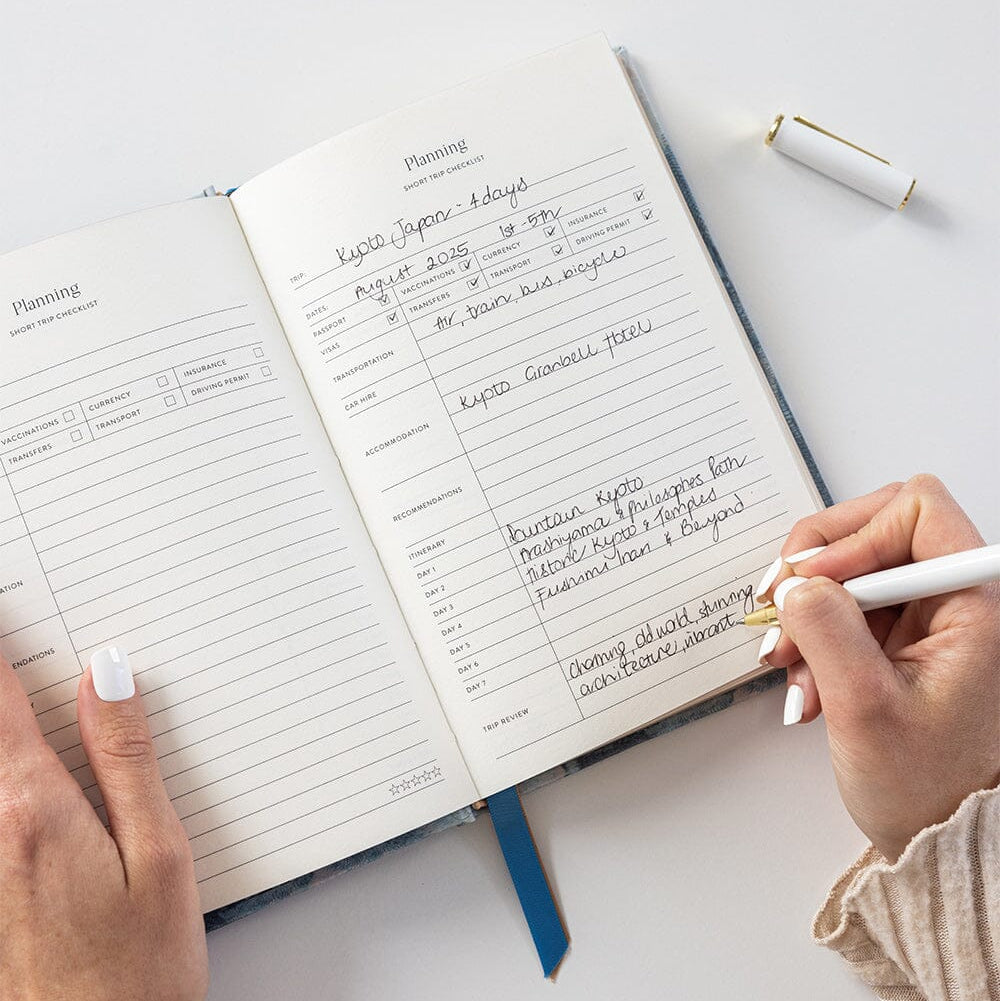 Planning
SHORT TRIP CHECKLIST
VACCINATIONS CURRENCY INSURANCE
TRANSFERS TRANSPORT DRIVING PERMIT
Planning
SHORT TRIP CHECKLIST
TRIP: Kyoto Japan - 4 days
DATES: August 2025 1st - 5th
PASSPORT VACCINATIONS CURRENCY INSURANCE
VISAS TRANSFERS TRANSPORT DRIVING PERMIT
TRANSPORTATION Air, train, bus, bicycle
CAR HIRE
ACCOMMODATION Kyoto Granbell Hotel
RECOMMENDATIONS
ITINERARY
DAY 1 Kyoto
DAY 2 Arashiyama & Philosophes Path
DAY 3 Historic Kyoto & Temples
DAY 4 Fushimi Inari & Beyond
DAY 5
DAY 6
DAY 7
TRIP REVIEW charming, old world, stunning
architecture, vibrant